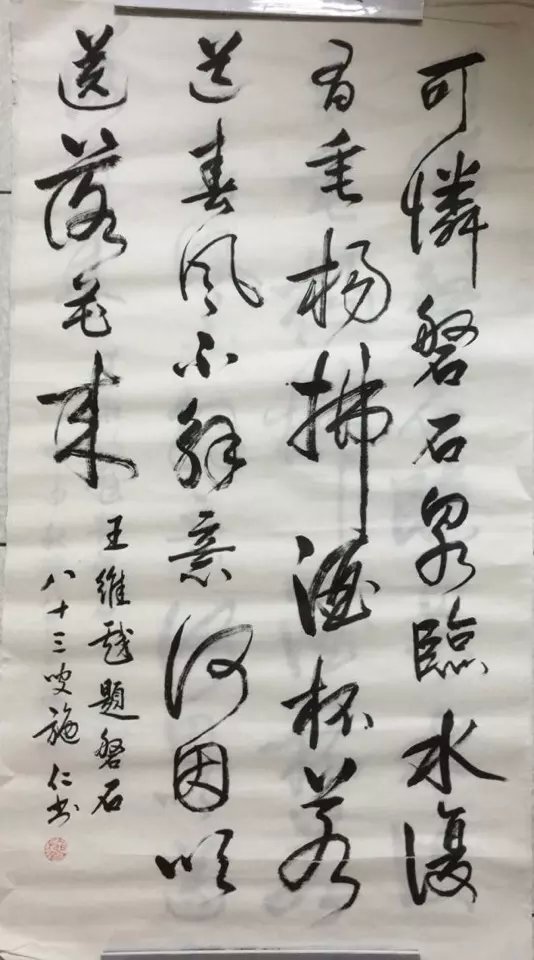 可憐磐石泉臨水復
有垂楊拂酒杯若
道春風不解意何因吹
送落花来
王維戲題磐石
八十三叟施仁书